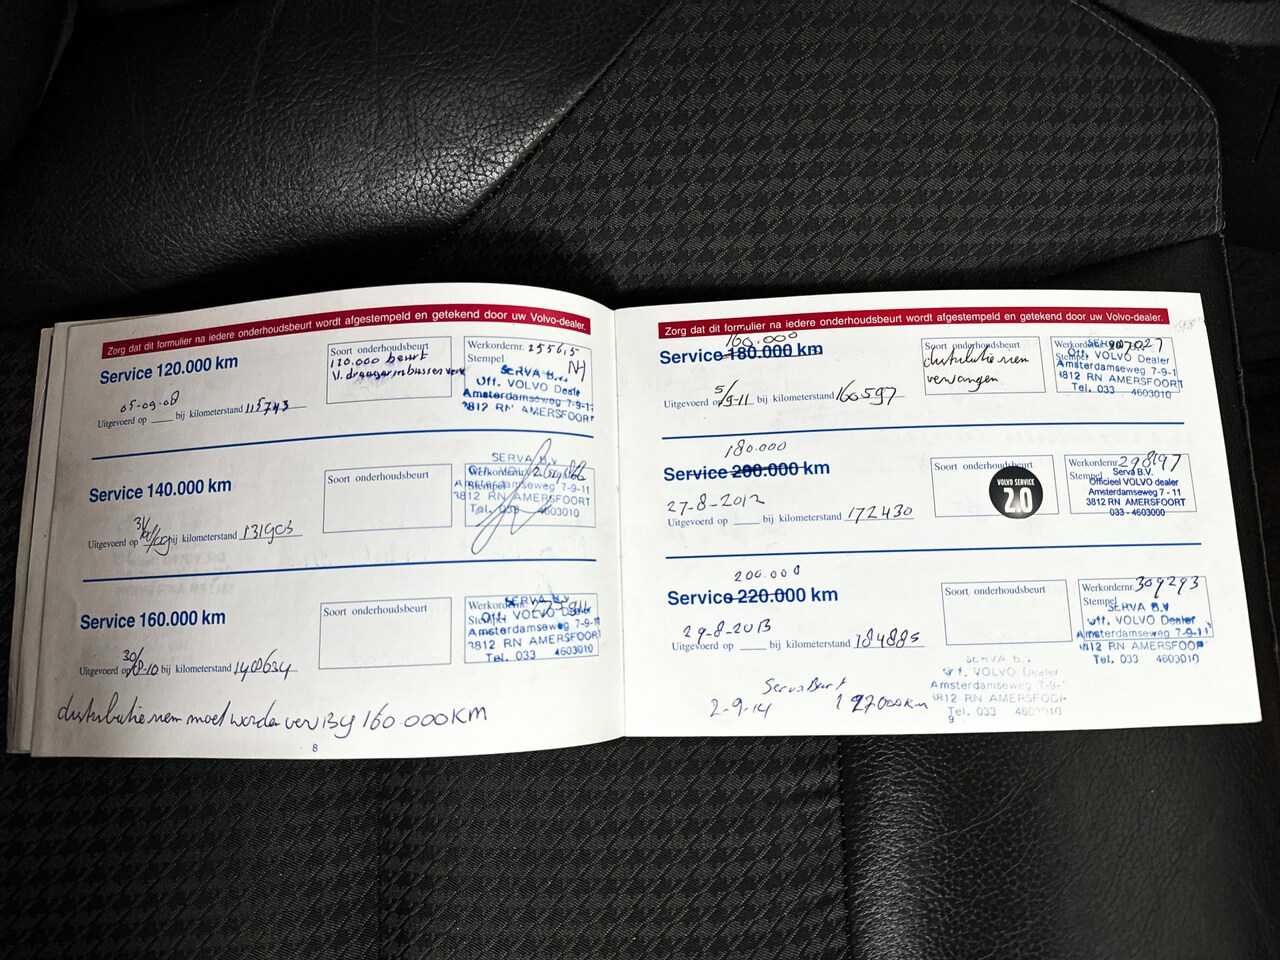 Zorg dat dit formulier na iedere onderhoudsbeurt wordt afgestempeld en getekend door uw Volvo-dealer.
Service 120.000 km
Soort onderhoudsbeurt
120.000 beurt
V. draagarmbussen verv
Werkordernr.
Stempel
SERVA B.V.
Off. VOLVO Dealer
Amsterdamseweg 7-9-11
3812 RN AMERSFOORT
05-09-08
Uitgevoerd op ____ bij kilometerstand 115743
Service 140.000 km
Soort onderhoudsbeurt
SERVA B.V
Werkordernr.
Stempel
Off. VOLVO
Amsterdamseweg 7-9-11
3812 RN AMERSFOORT
Tel. 033 4603010
Uitgevoerd op bij kilometerstand 131903
Service 160.000 km
Soort onderhoudsbeurt
Werkordernr.
Stempel
SERVA B.V
Off. VOLVO Dealer
Amsterdamseweg 7-9-11
3812 RN AMERSFOORT
Tel. 033 4603010
Uitgevoerd op bij kilometerstand
distributie riem moet worden verv BIJ 160.000KM
8
Zorg dat dit formulier na iedere onderhoudsbeurt wordt afgestempeld en getekend door uw Volvo-dealer.
160.000
Service 180.000 km
Soort onderhoudsbeurt
distributie riem
vervangen
Werkordernr.
Stempel
SERVA
Off. VOLVO Dealer
Amsterdamseweg 7-9-1
3812 RN AMERSFOORT
Tel. 033 4603010
Uitgevoerd op 5/9-11 bij kilometerstand 160597
180.000
Service 200.000 km
Soort onderhoudsbeurt
VOLVO SERVICE
2.0
Werkordernr. 298197
Stempel
Serva B.V.
Officieel VOLVO dealer
Amsterdamseweg 7 - 11
3812 RN AMERSFOORT
033 - 4603000
27-8-2012
Uitgevoerd op ____ bij kilometerstand 172430
200.000
Service 220.000 km
Soort onderhoudsbeurt
Werkordernr. 309293
Stempel
SERVA B.V
Off. VOLVO Dealer
Amsterdamseweg 7-9-11
3812 RN AMERSFOOR
Tel. 033 4603010
29-8-2013
Uitgevoerd op ____ bij kilometerstand 184885
SERVA B.
VOLVO Dealer
Amsterdamseweg 7-9-
3812 RN AMERSFOOR
Tel. 033
2-9-14 197000km
9